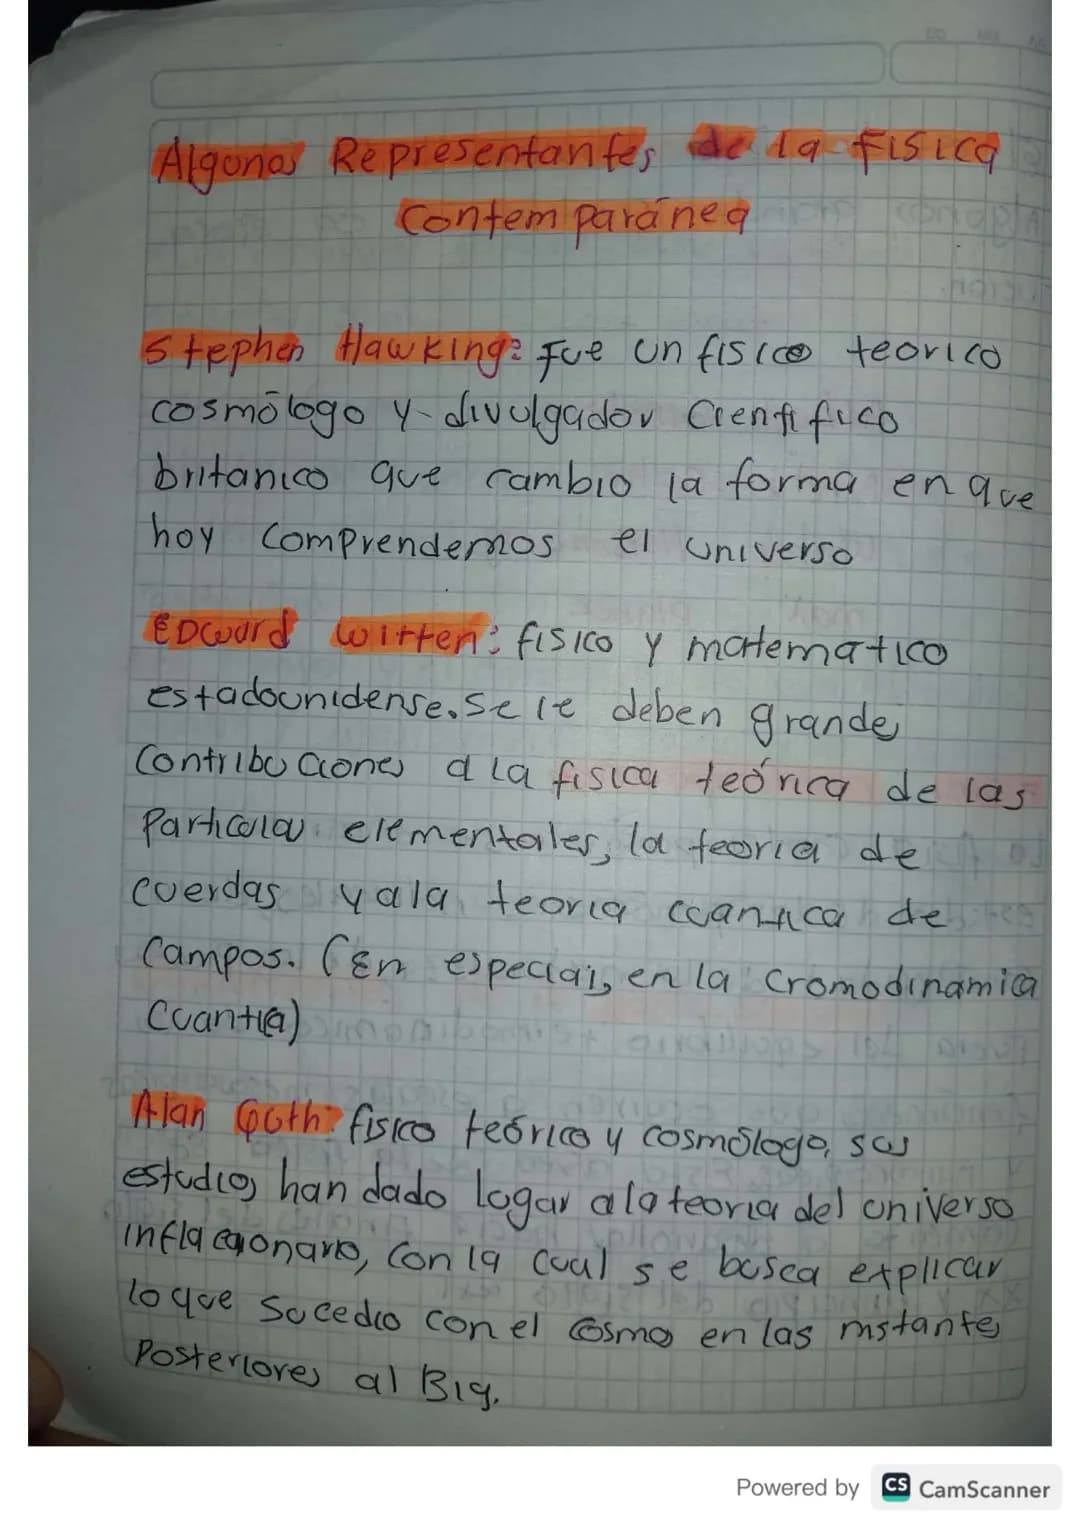 Algunos Representantes de la Fisica
Contemparánea
Stephen Hawking: Fue un fisico teorico
cosmólogo y divulgador Cientifico
britanico que cambio la forma en que
hoy Comprendemos el universo
Edward witten: fisico y matematico
estadounidense. Se le deben grandes
Contribuciones a la fisica teórica de las
Particulas elementales, la teoria de
cuerdas y a la teoria cuantica de
Campos. (En especial, en la Cromodinamica
Cuantica)
Alan Guth: fisico teórico y cosmólogo, sus
estudios han dado lugar a la teoria del universo
inflacionario, con la cual se busca explicar
lo que Sucedio con el Cosmo en las instantes
Posteriores al Big.
Powered by CS CamScanner